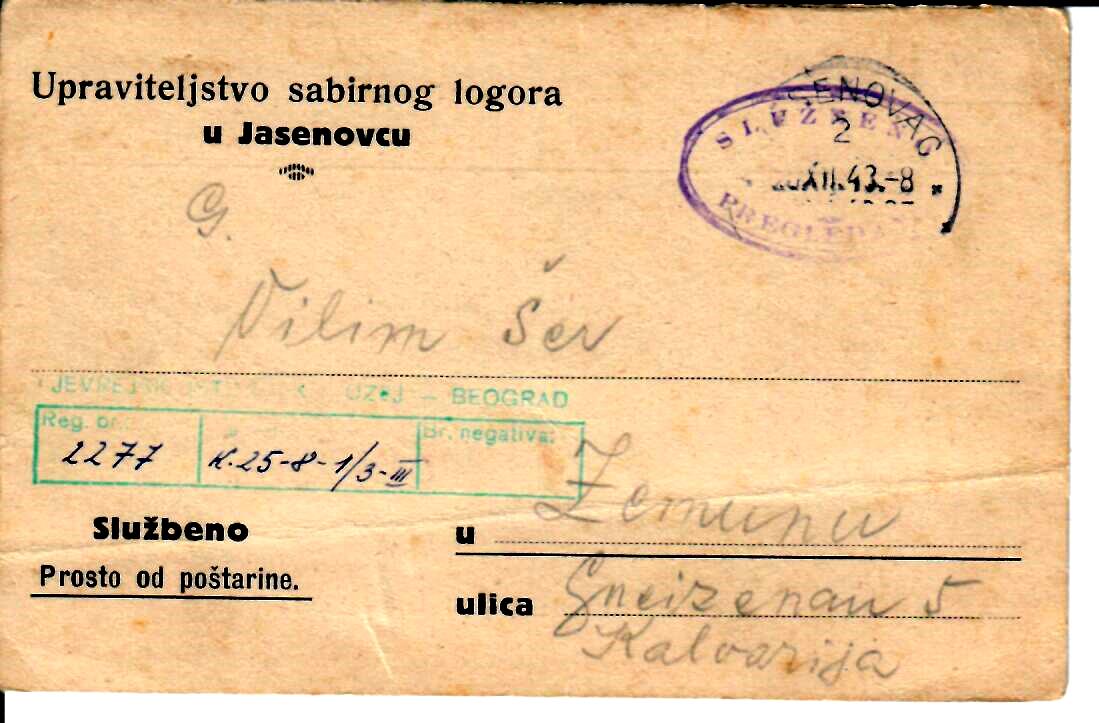 Upraviteljstvo sabirnog logora
u Jasenovcu
SENOVAC
2
XII.43.-8
SLUŽBENO
PREGLEDA
G.
Vilim Šer
JEVREJSKI - BEOGRAD
Reg. br.:
Br. negativa:
2277
K.25-8-1/3-III
Službeno
Prosto od poštarine.
u Zemunu
ulica Gneizenau 5
Kalvarija